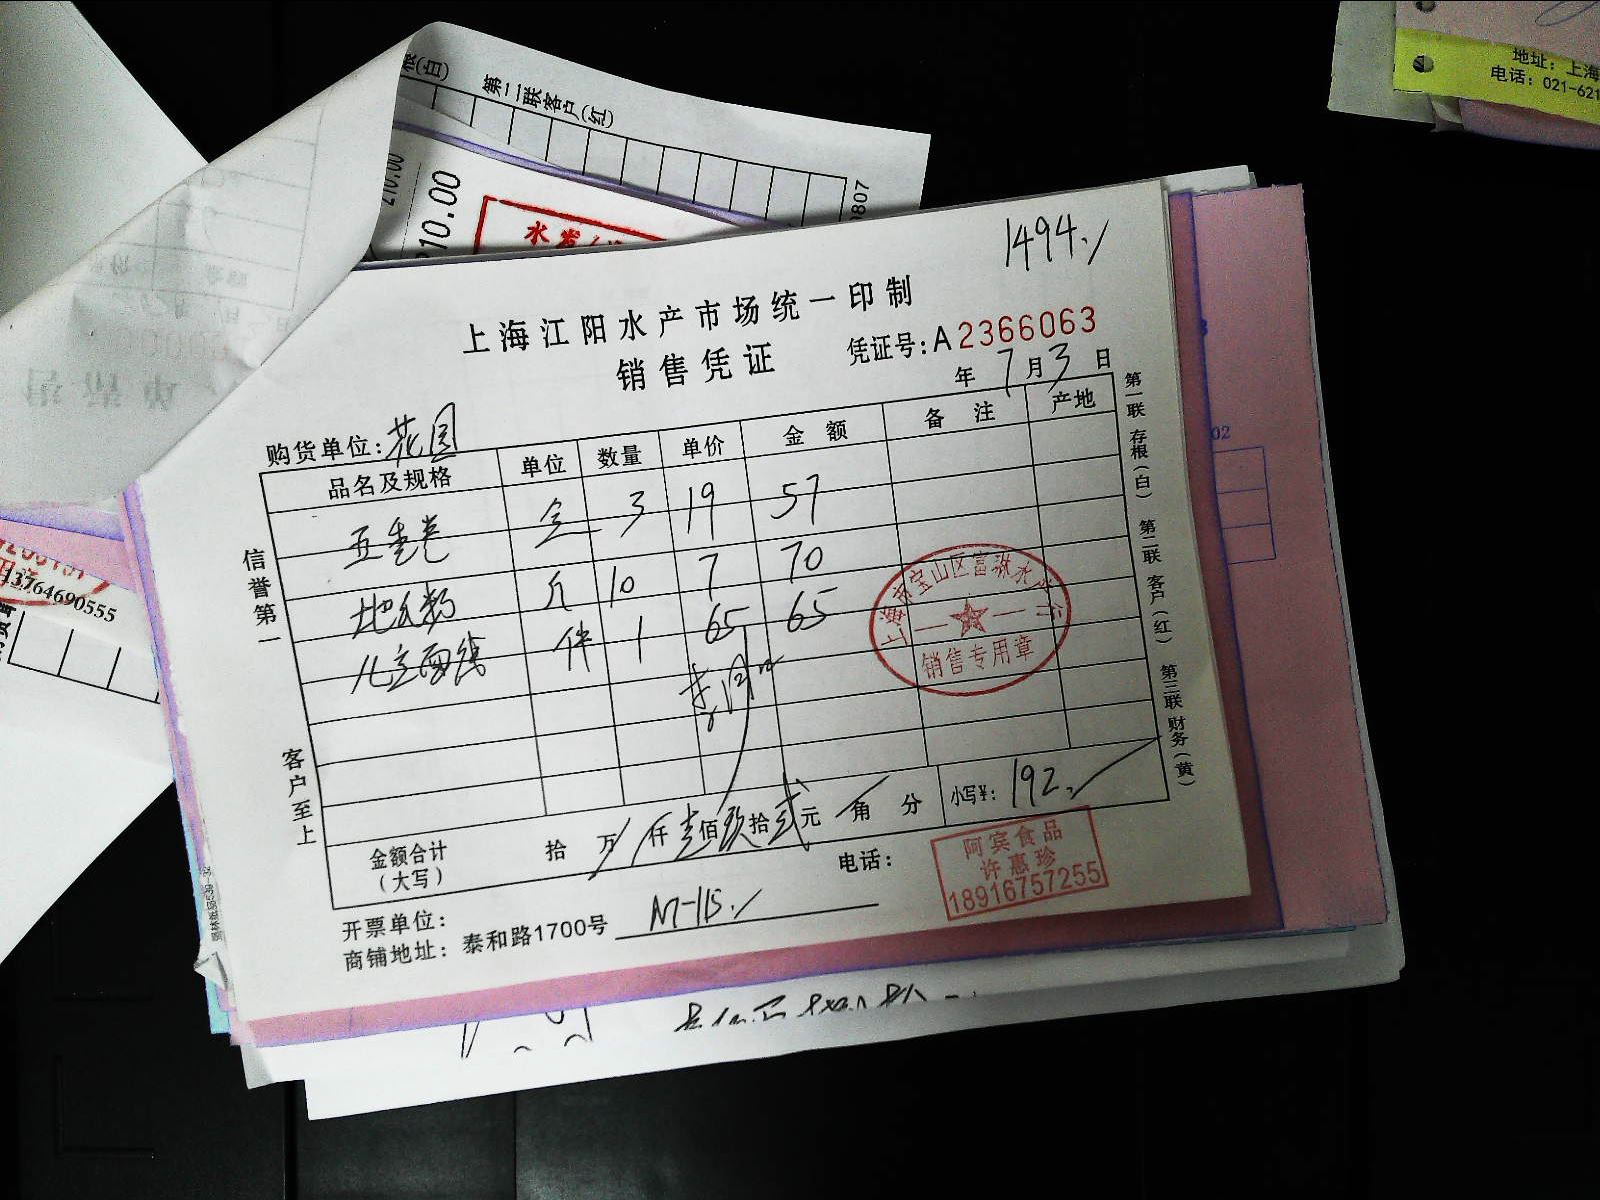 根(白)
第二联客户(红)
210.00
10.00
0807
地址：上海
电话：021-621
13764690555
02
1494.
上海江阳水产市场统一印制
销售凭证
凭证号:A2366063
年7月3日
购货单位:花园
品名及规格 单位 数量 单价 金额 备注 产地
五香卷 3 19 57
斤 10 7 70
件 1 65 65
金额合计(大写) 拾万仟壹佰玖拾贰元角分 小写¥:192.
电话:
开票单位:
商铺地址: 泰和路1700号
信誉第一
客户至上
第一联 存根(白) 第二联 客户(红) 第三联 财务(黄)
销售专用章
阿宾食品
许惠珍
18916757255